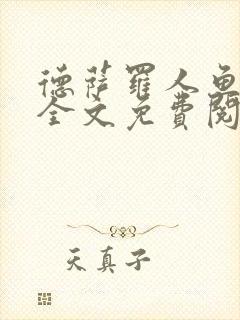 德萨罗人鱼
全文免费阅
天真子